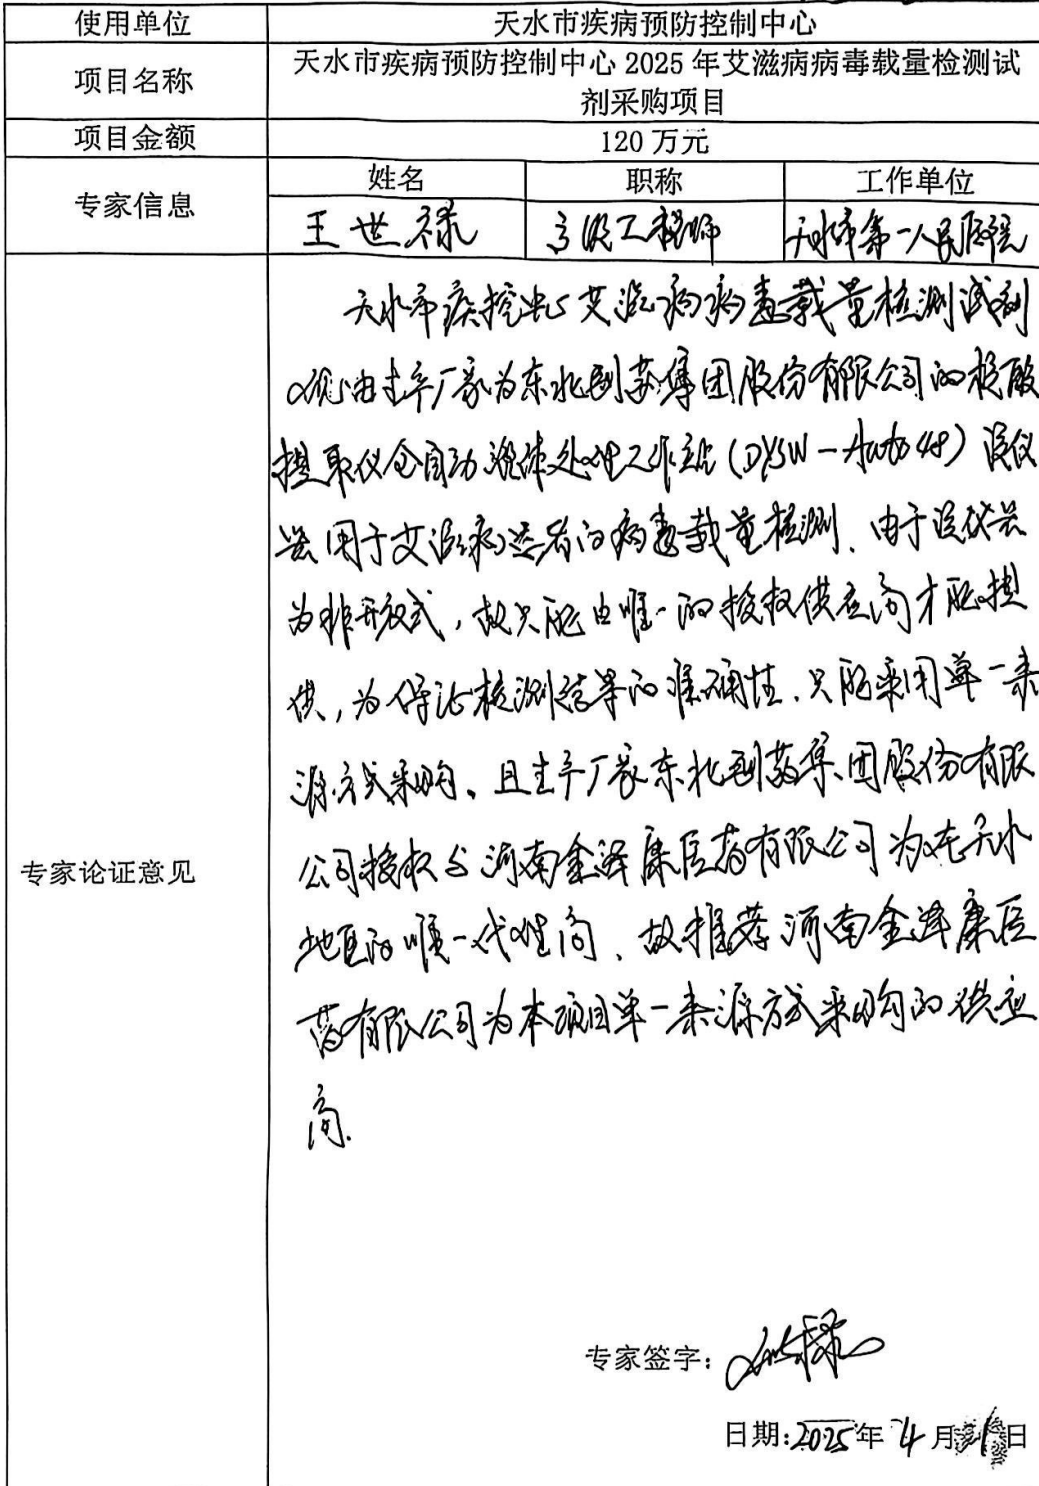 使用单位 天水市疾病预防控制中心
项目名称 天水市疾病预防控制中心 2025 年艾滋病病毒载量检测试
剂采购项目
项目金额 120 万元
专家信息 姓名 职称 工作单位
王世禄 高级工程师 天水市第一人民医院
天水市疾控中心艾滋病病毒载量检测试剂
现由生产厂家为东北制药集团股份有限公司的核酸
提取仪全自动液体处理工作站(DYSW-Auto 48)该仪
器用于艾滋病患者的病毒载量检测、由于该仪器
为非开放式,故只能由唯一的授权供应商才能提
供,为保证检测结果的准确性、只能采用单一来
源方式采购。且生产厂家东北制药集团股份有限
公司授权与河南金泽康医药有限公司为在天水
地区的唯一代理商、故推荐河南金泽康医
药有限公司为本项目单一来源方式采购的供应
商.
专家论证意见
专家签字: 王世禄
日期:2025年4月 日